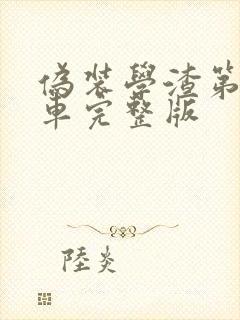 偽裝學渣第
車完整版
陸炎